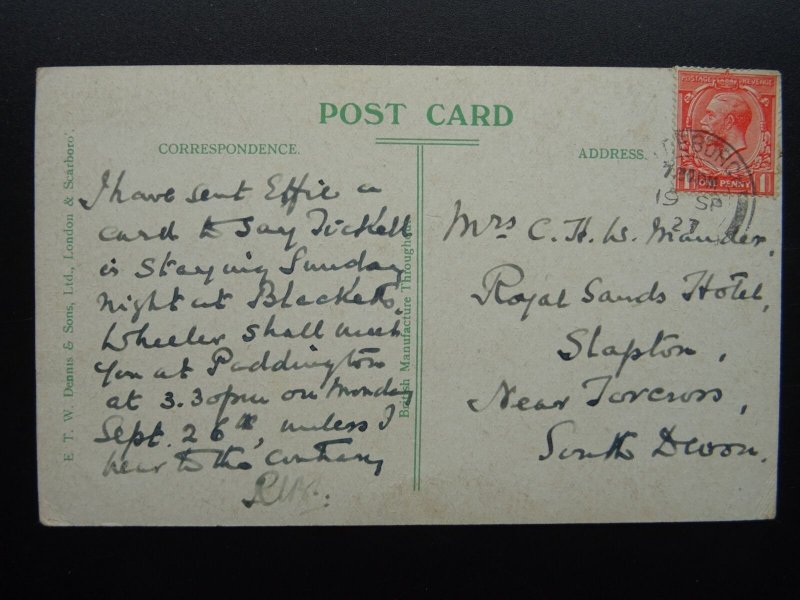 POST CARD
CORRESPONDENCE.
ADDRESS.
E. T. W. Dennis & Sons, Ltd., London & Scarboro'.
British Manufacture Throughout
POSTAGE REVENUE
ONE PENNY
19 SP
27
I have sent Effie a
card to say Tickell
is staying Sunday
night at Blacketts.
Wheeler shall meet
you at Paddington
at 3.30pm on Monday
Sept. 26th, unless I
hear to the contrary
Mrs C. H. W. Mander.
Royal Sands Hotel,
Slapton,
Near Torcross,
South Devon.